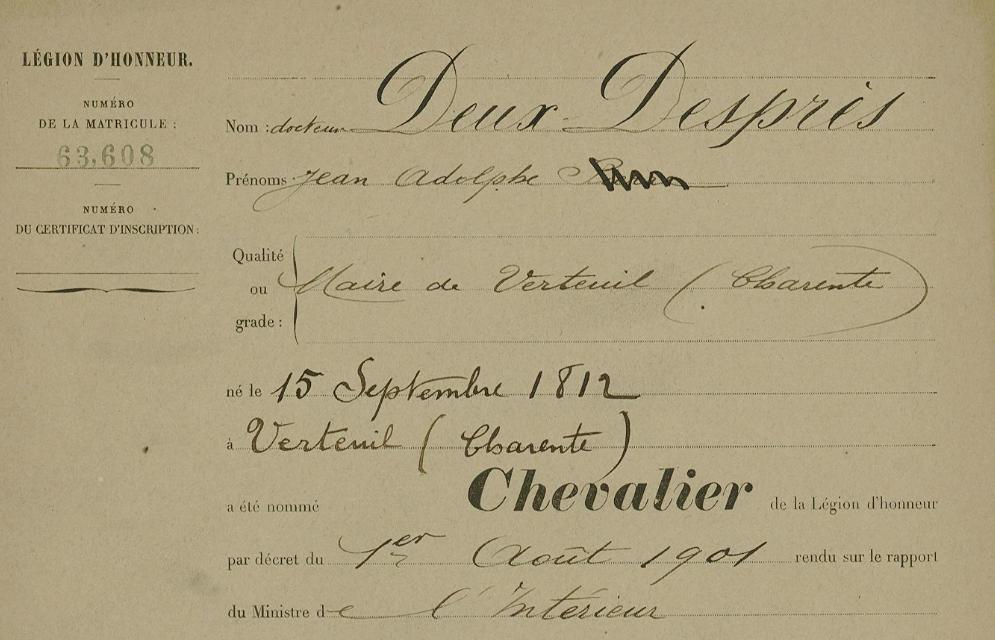 LÉGION D'HONNEUR.
NUMÉRO
DE LA MATRICULE :
63,608
NUMÉRO
DU CERTIFICAT D'INSCRIPTION :
Nom : docteur Deux-Desprès
Prénoms Jean Adolphe
Qualité
ou Maire de Verteuil (Charente)
grade :
né le 15 Septembre 1812
à Verteuil (Charente)
a été nommé Chevalier de la Légion d'honneur
par décret du 1er Août 1901 rendu sur le rapport
du Ministre de l'Intérieur